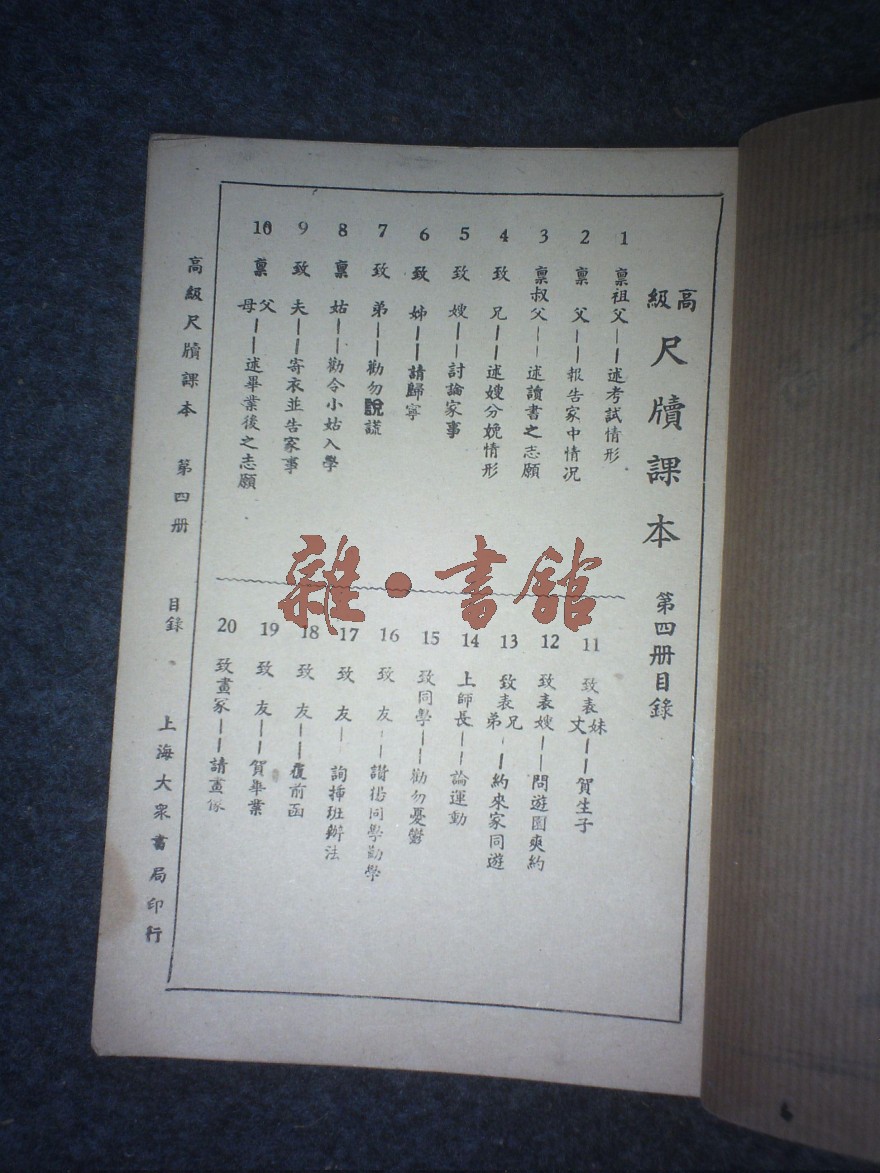 高級尺牘課本 第四册目錄
1 稟祖父——述考試情形
2 稟父——報告家中情况
3 稟叔父——述讀書之志願
4 致兄——述嫂分娩情形
5 致嫂——討論家事
6 致姊——請歸寧
7 致弟——勸勿說謊
8 稟姑——勸令小姑入學
9 致夫——寄衣並告家事
10 稟父母——述畢業後之志願
11 致表妹丈——賀生子
12 致表嫂——問遊園爽約
13 致表兄弟——約來家同遊
14 上師長——論運動
15 致同學——勸勿憂鬱
16 致友——讃揚同學勤學
17 致友——詢揷班辦法
18 致友——覆前函
19 致友——賀畢業
20 致畫家——請畫像
高級尺牘課本 第四册 目錄 上海大衆書局印行
雜·書館